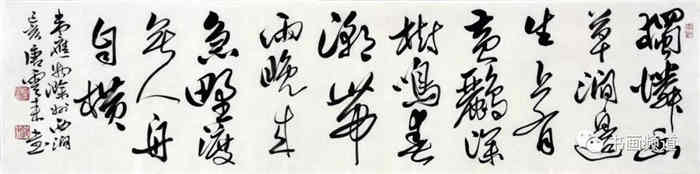 獨憐幽
草澗邊
生上有
黄鸝深
樹鳴春
潮帶
雨晚来
急野渡
無人舟
自横
韋應物滁州西澗
唐雲来書
书画频道